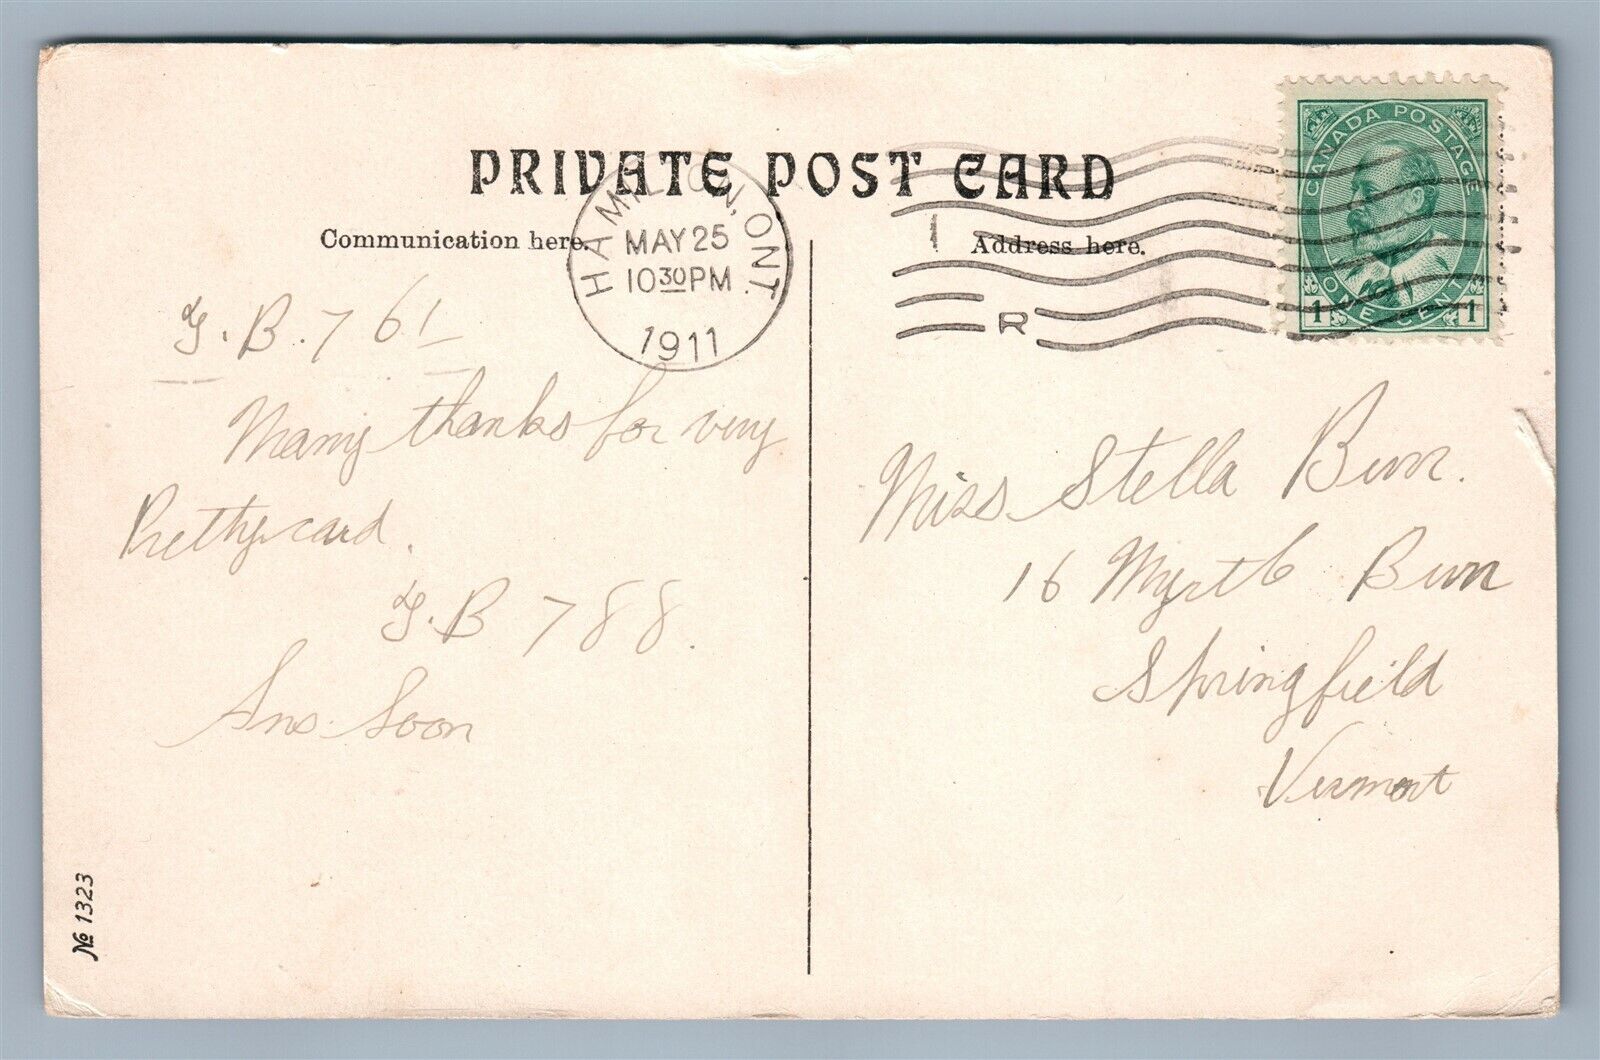 PRIVATE POST CARD
Communication here.
Address here.
HAMILTON, ONT.
MAY 25
10 30 PM
1911
R
CANADA POSTAGE
ONE CENT
1 1
G.B. 761
Many thanks for very
Pretty card.
G.B 788.
Ans. Soon
Miss Stella Burr.
16 Myrtle Burr
Springfield
Vermont
№ 1323